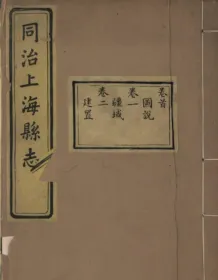 同治上海縣志
卷首
圖說
卷一
疆域
卷二
建置